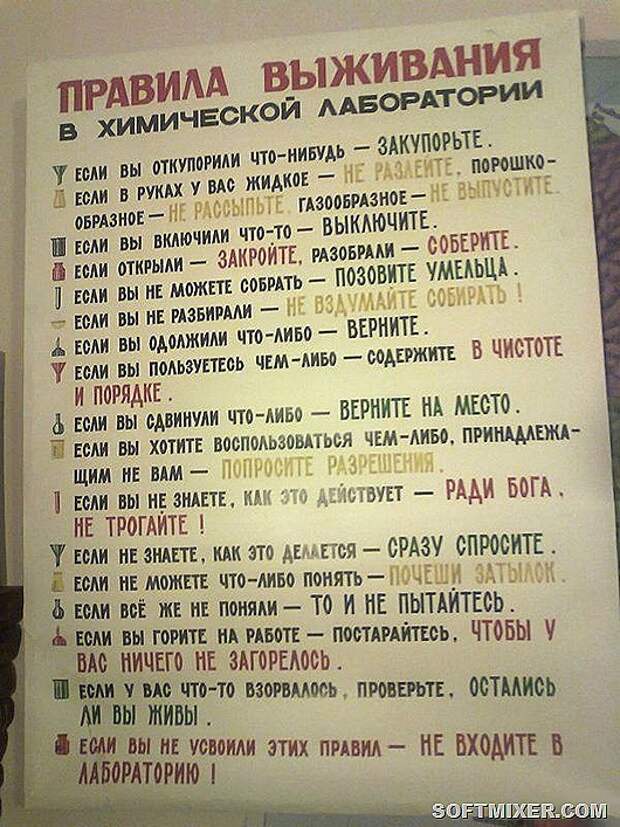 ПРАВИЛА ВЫЖИВАНИЯ
В ХИМИЧЕСКОЙ ЛАБОРАТОРИИ
ЕСЛИ ВЫ ОТКУПОРИЛИ ЧТО-НИБУДЬ — ЗАКУПОРЬТЕ.
ЕСЛИ В РУКАХ У ВАС ЖИДКОЕ — НЕ РАЗЛЕЙТЕ, ПОРОШКО-
ОБРАЗНОЕ — НЕ РАССЫПЬТЕ, ГАЗООБРАЗНОЕ — НЕ ВЫПУСТИТЕ.
ЕСЛИ ВЫ ВКЛЮЧИЛИ ЧТО-ТО — ВЫКЛЮЧИТЕ.
ЕСЛИ ОТКРЫЛИ — ЗАКРОЙТЕ, РАЗОБРАЛИ — СОБЕРИТЕ.
ЕСЛИ ВЫ НЕ МОЖЕТЕ СОБРАТЬ — ПОЗОВИТЕ УМЕЛЬЦА.
ЕСЛИ ВЫ НЕ РАЗБИРАЛИ — НЕ ВЗДУМАЙТЕ СОБИРАТЬ!
ЕСЛИ ВЫ ОДОЛЖИЛИ ЧТО-ЛИБО — ВЕРНИТЕ.
ЕСЛИ ВЫ ПОЛЬЗУЕТЕСЬ ЧЕМ-ЛИБО — СОДЕРЖИТЕ В ЧИСТОТЕ
И ПОРЯДКЕ.
ЕСЛИ ВЫ СДВИНУЛИ ЧТО-ЛИБО — ВЕРНИТЕ НА МЕСТО.
ЕСЛИ ВЫ ХОТИТЕ ВОСПОЛЬЗОВАТЬСЯ ЧЕМ-ЛИБО, ПРИНАДЛЕЖА-
ЩИМ НЕ ВАМ — ПОПРОСИТЕ РАЗРЕШЕНИЯ.
ЕСЛИ ВЫ НЕ ЗНАЕТЕ, КАК ЭТО ДЕЙСТВУЕТ — РАДИ БОГА,
НЕ ТРОГАЙТЕ!
ЕСЛИ НЕ ЗНАЕТЕ, КАК ЭТО ДЕЛАЕТСЯ — СРАЗУ СПРОСИТЕ.
ЕСЛИ НЕ МОЖЕТЕ ЧТО-ЛИБО ПОНЯТЬ — ПОЧЕШИ ЗАТЫЛОК.
ЕСЛИ ВСЁ ЖЕ НЕ ПОНЯЛИ — ТО И НЕ ПЫТАЙТЕСЬ.
ЕСЛИ ВЫ ГОРИТЕ НА РАБОТЕ — ПОСТАРАЙТЕСЬ, ЧТОБЫ У
ВАС НИЧЕГО НЕ ЗАГОРЕЛОСЬ.
ЕСЛИ У ВАС ЧТО-ТО ВЗОРВАЛОСЬ, ПРОВЕРЬТЕ, ОСТАЛИСЬ
ЛИ ВЫ ЖИВЫ.
ЕСЛИ ВЫ НЕ УСВОИЛИ ЭТИХ ПРАВИЛ — НЕ ВХОДИТЕ В
ЛАБОРАТОРИЮ!
SOFTMIXER.COM